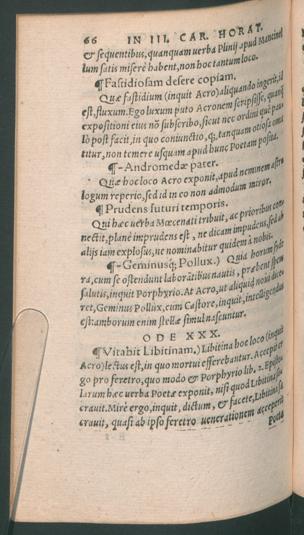 66 IN III. CAR. HORAT.
& sequentibus, quanquam uerba Plinij apud Mancinel
lum satis miserè habent, non hoc tantum loco.
¶ Fastidiosam desere copiam.
Quæ fastidium (inquit Acro) aliquando ingerit, id
est, fluxum. Ego luxum puto Acronem scripsisse, quanq̃
expositioni eius nõ subscribo, sicut nec ordini quẽ pau
lò post facit, in quo coniunctio, &, tanquam otiosa omit
titur, non temere usquam apud hunc Poetam posita.
¶ -Andromedæ pater.
Quæ hoc loco Acro exponit, apud neminem astro
logum reperio, sed id in eo non admodum miror.
¶ Prudens futuri temporis.
Qui hæc uerba Mœcenati tribuit, ac prioribus con
nectit, planè imprudens est, ne dicam impudens, sed ab
alijs iam explosus, ne nominabitur quidem à nobis.
¶ -Geminusq; Pollux.) Quia horum side
ra, cum se ostendunt laborãtibus nautis, præbent spem
salutis, inquit Porphyrio. At Acro, ut aliquid noui dice
ret, Geminus Pollux, cum Castore, inquit, intelligendus
est: amborum enim stellæ simul nascuntur.
ODE XXX.
¶ Vitabit Libitinam.) Libitina hoc loco (inquit
Acro) lectus est, in quo mortui efferebantur. Accepit er
go pro feretro, quo modo & Porphyrio lib. 2. Epistola
larum hæc uerba Poetæ exponit, nisi quod Libitina
crauit. Mirè ergo, inquit, dictum, & facetè, Libitina sa
crauit, quasi ab ipso feretro uenerationem acceperit
Poeta